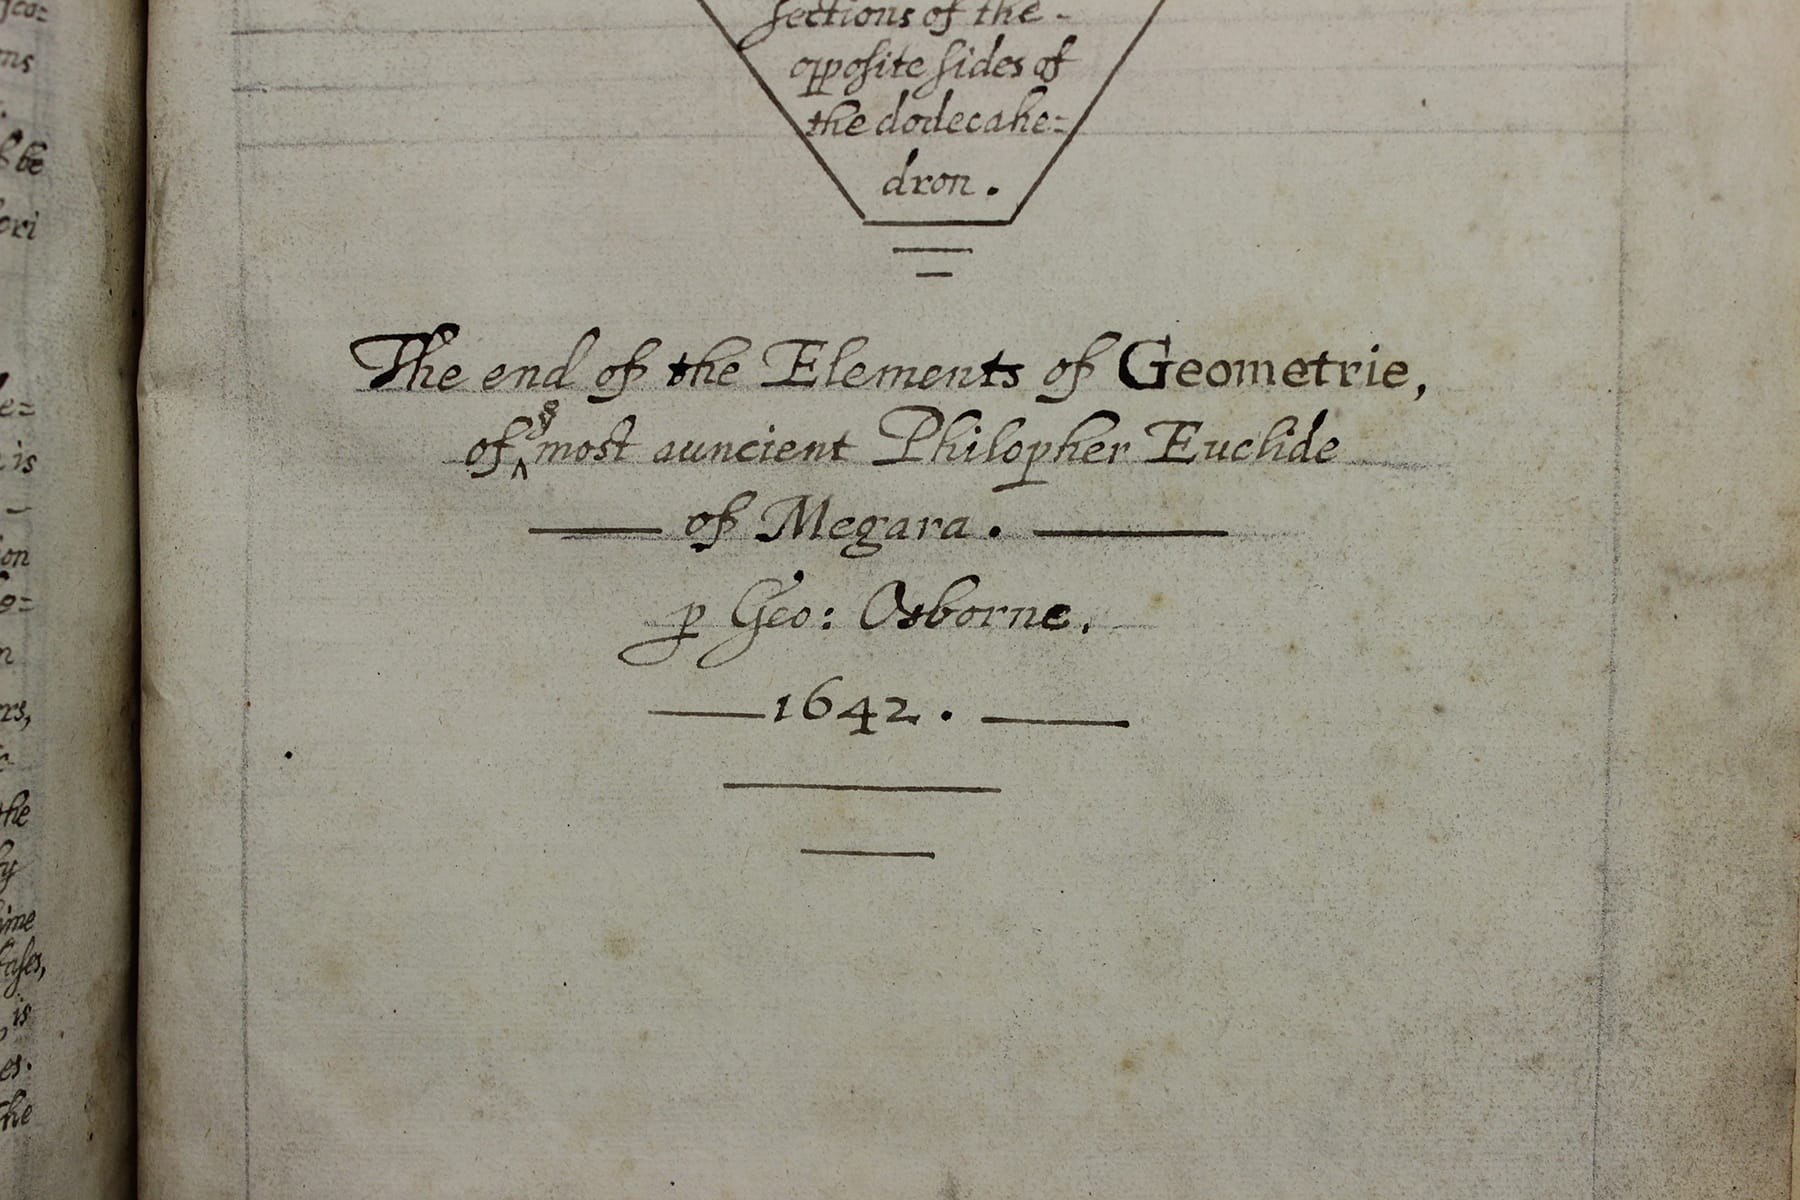 sections of the -
opposite sides of
the dodecahe=
dron.
The end of the Elements of Geometrie,
of ^ye most auncient Philopher Euclide
of Megara.
p Geo: Osborne.
1642.
ms
be
ori
e=
is
on
n
rs,
the
by
is
es.
the